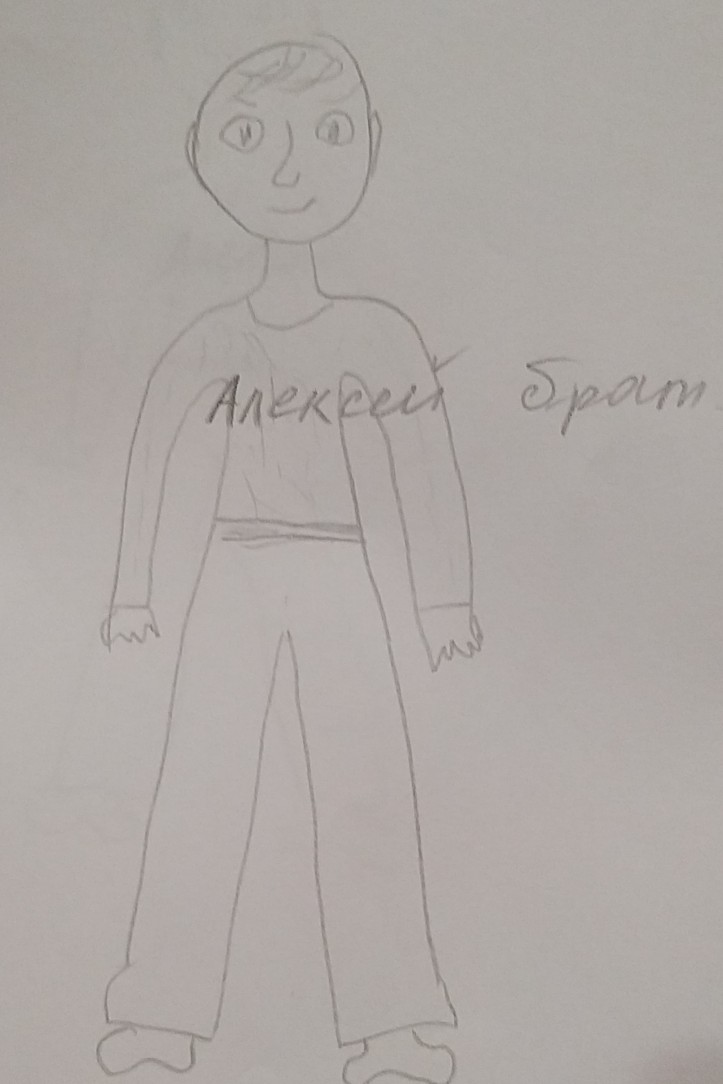 Алексей брат